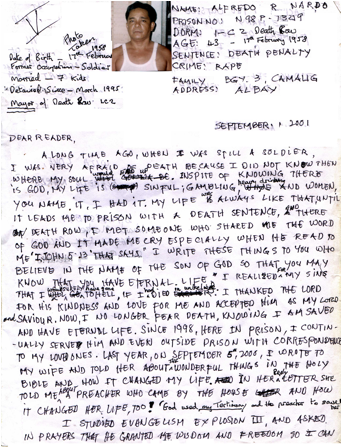 Photo
Taken
1998
Date of Birth - 17th February 1958
Former Occupation - Soldier
Married - 7 kids
Detained Since - March 1995
Mayor of Death Row 1-C2
NAME: ALFREDO R. NARDO
PRISON NO: N98P-
DORM: 1-C2 Death Row
AGE: 43 - 17th February 1958
SENTENCE: DEATH PENALTY
CRIME: RAPE
FAMILY BGY. 3, CAMALIG
ADDRESS: ALBAY
SEPTEMBER, 2001
DEAR READER,
A LONG TIME AGO, WHEN I WAS STILL A SOLDIER,
I WAS VERY AFRAID OF DEATH BECAUSE I DID NOT KNOW THEN
WHERE MY SOUL would end up. INSPITE OF KNOWING THERE
IS GOD, MY LIFE IS SINFUL, GAMBLING, AND WOMEN,
YOU NAME IT, I HAD IT. MY LIFE IS ALWAYS LIKE THAT UNTIL
IT LEADS ME TO PRISON WITH A DEATH SENTENCE, THERE
DEATH ROW, I MET SOMEONE WHO SHARED ME THE WORD
OF GOD AND IT MADE ME CRY ESPECIALLY WHEN HE READ TO
ME "I JOHN 5:13 THAT SAYS: I WRITE THESE THINGS TO YOU WHO
BELIEVE IN THE NAME OF THE SON OF GOD SO THAT YOU MAY
KNOW THAT YOU HAVE ETERNAL LIFE." I REALIZED MY SINS
THAT I TO HELL, IF I DIED. I THANKED THE LORD
FOR HIS KINDNESS AND LOVE FOR ME AND ACCEPTED HIM AS MY LORD
AND SAVIOUR. NOW, I NO LONGER FEAR DEATH, KNOWING I AM SAVED
AND HAVE ETERNAL LIFE. SINCE 1998, HERE IN PRISON, I CONTIN-
UALLY SERVED HIM AND EVEN OUTSIDE PRISON WITH CORRESPONDENCE
TO MY LOVED ONES. LAST YEAR, ON SEPTEMBER 5th, 2000, I WROTE TO
MY WIFE AND TOLD HER ABOUT the WONDERFUL THINGS IN THE HOLY
BIBLE AND HOW IT CHANGED MY LIFE. IN HER LETTER, SHE
TOLD ME PREACHER WHO CAME BY THE HOUSE AND HOW
IT CHANGED HER LIFE, TOO! God used my Testimony and the preacher to save her
I STUDIED EVANGELISM EXPLOSION III, AND ASKED
IN PRAYERS THAT HE GRANTED ME WISDOM AND FREEDOM SO I CAN